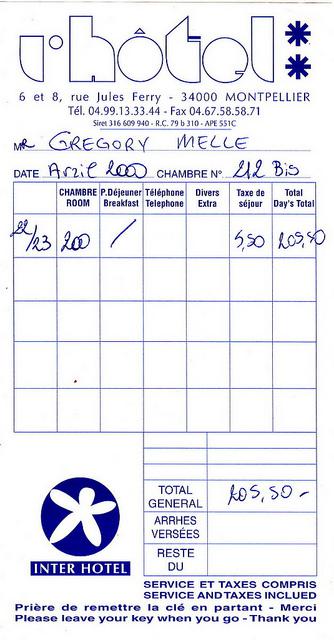 l'hôtel **
6 et 8, rue Jules Ferry - 34000 MONTPELLIER
Tél. 04.99.13.33.44 - Fax 04.67.58.58.71
Siret 316 609 940 - R.C. 79 b 310 - APE 551C
MR GREGORY MELLE
DATE Avril 2000 CHAMBRE N° 212 Bis
CHAMBRE ROOM P.Déjeuner Breakfast Téléphone Telephone Divers Extra Taxe de séjour Total Day's Total
22/23 200 / 5,50 205,50
TOTAL GENERAL 205,50-
ARRHES VERSÉES
RESTE DU
INTER HOTEL
SERVICE ET TAXES COMPRIS
SERVICE AND TAXES INCLUDED
Prière de remettre la clé en partant - Merci
Please leave your key when you go - Thank you